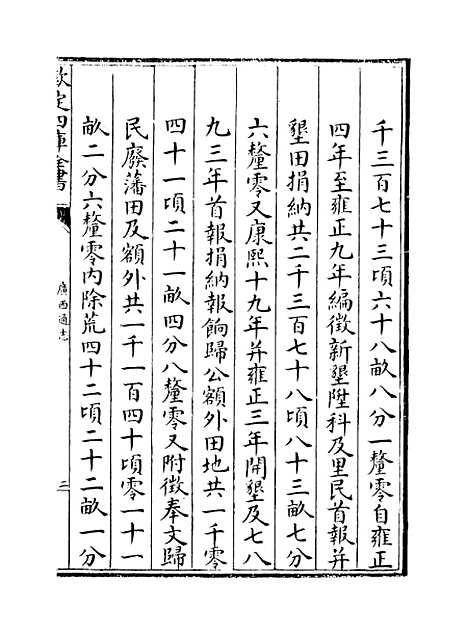 千三百七十三頃六十八畝八分一釐零自雍正
四年至雍正九年編徵新墾陞科及里民首報并
墾田捐納共二千三百七十八頃八十三畝七分
六釐零又康熙十九年并雍正三年開墾及七八
九三年首報捐納報餉歸公額外田地共一千零
四十一頃二十一畝四分八釐零又附徵奉文歸
民廢藩田及額外共一千一百四十頃零一十一
畝二分六釐零内除荒四十二頃二十二畝一分
欽定四庫全書
廣西通志
三